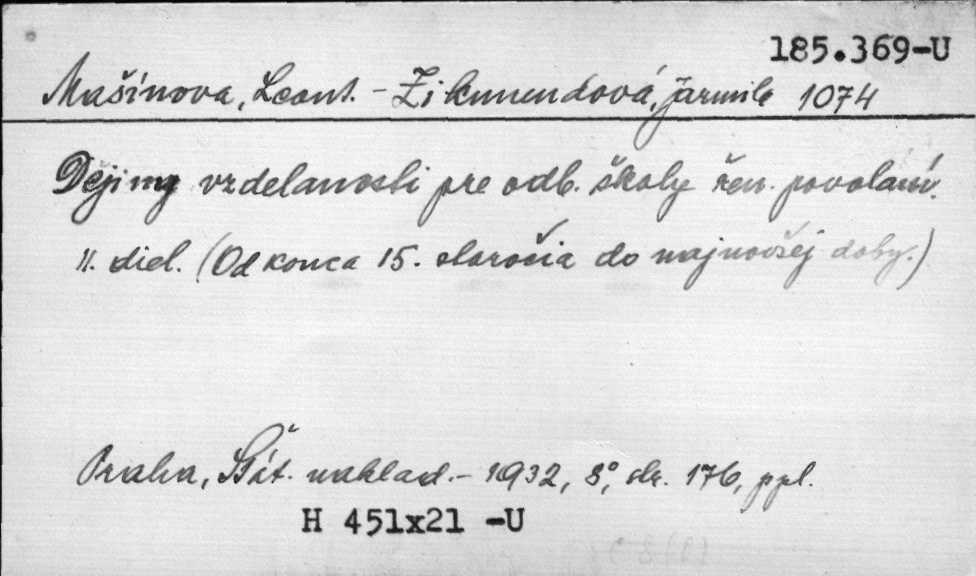 185.369-U
Mašínova, Leont. - Zikmundová, Jarmila 1074
Dejiny vzdelanosti pre odb. školy žen. povolání.
II. diel. (Od konca 15. storočia do najnovšej doby.)
Praha, Štát. naklad. - 1932, 8°, str. 176, ppl.
H 451x21 -U